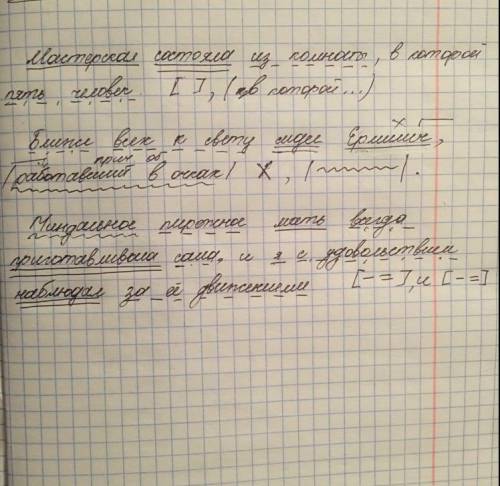 Мастерская состояла из комнаты, в которой
пять человек. [ ], (в которой...)
Ближе всех к свету сидел Ермилыч,
прич. об.
|работавший в очках| X, |~~~~|.
Миндальное пирожное мать всегда
приготавливала сама, и я с удовольствием
наблюдал за её движениями [- =], и [- =]